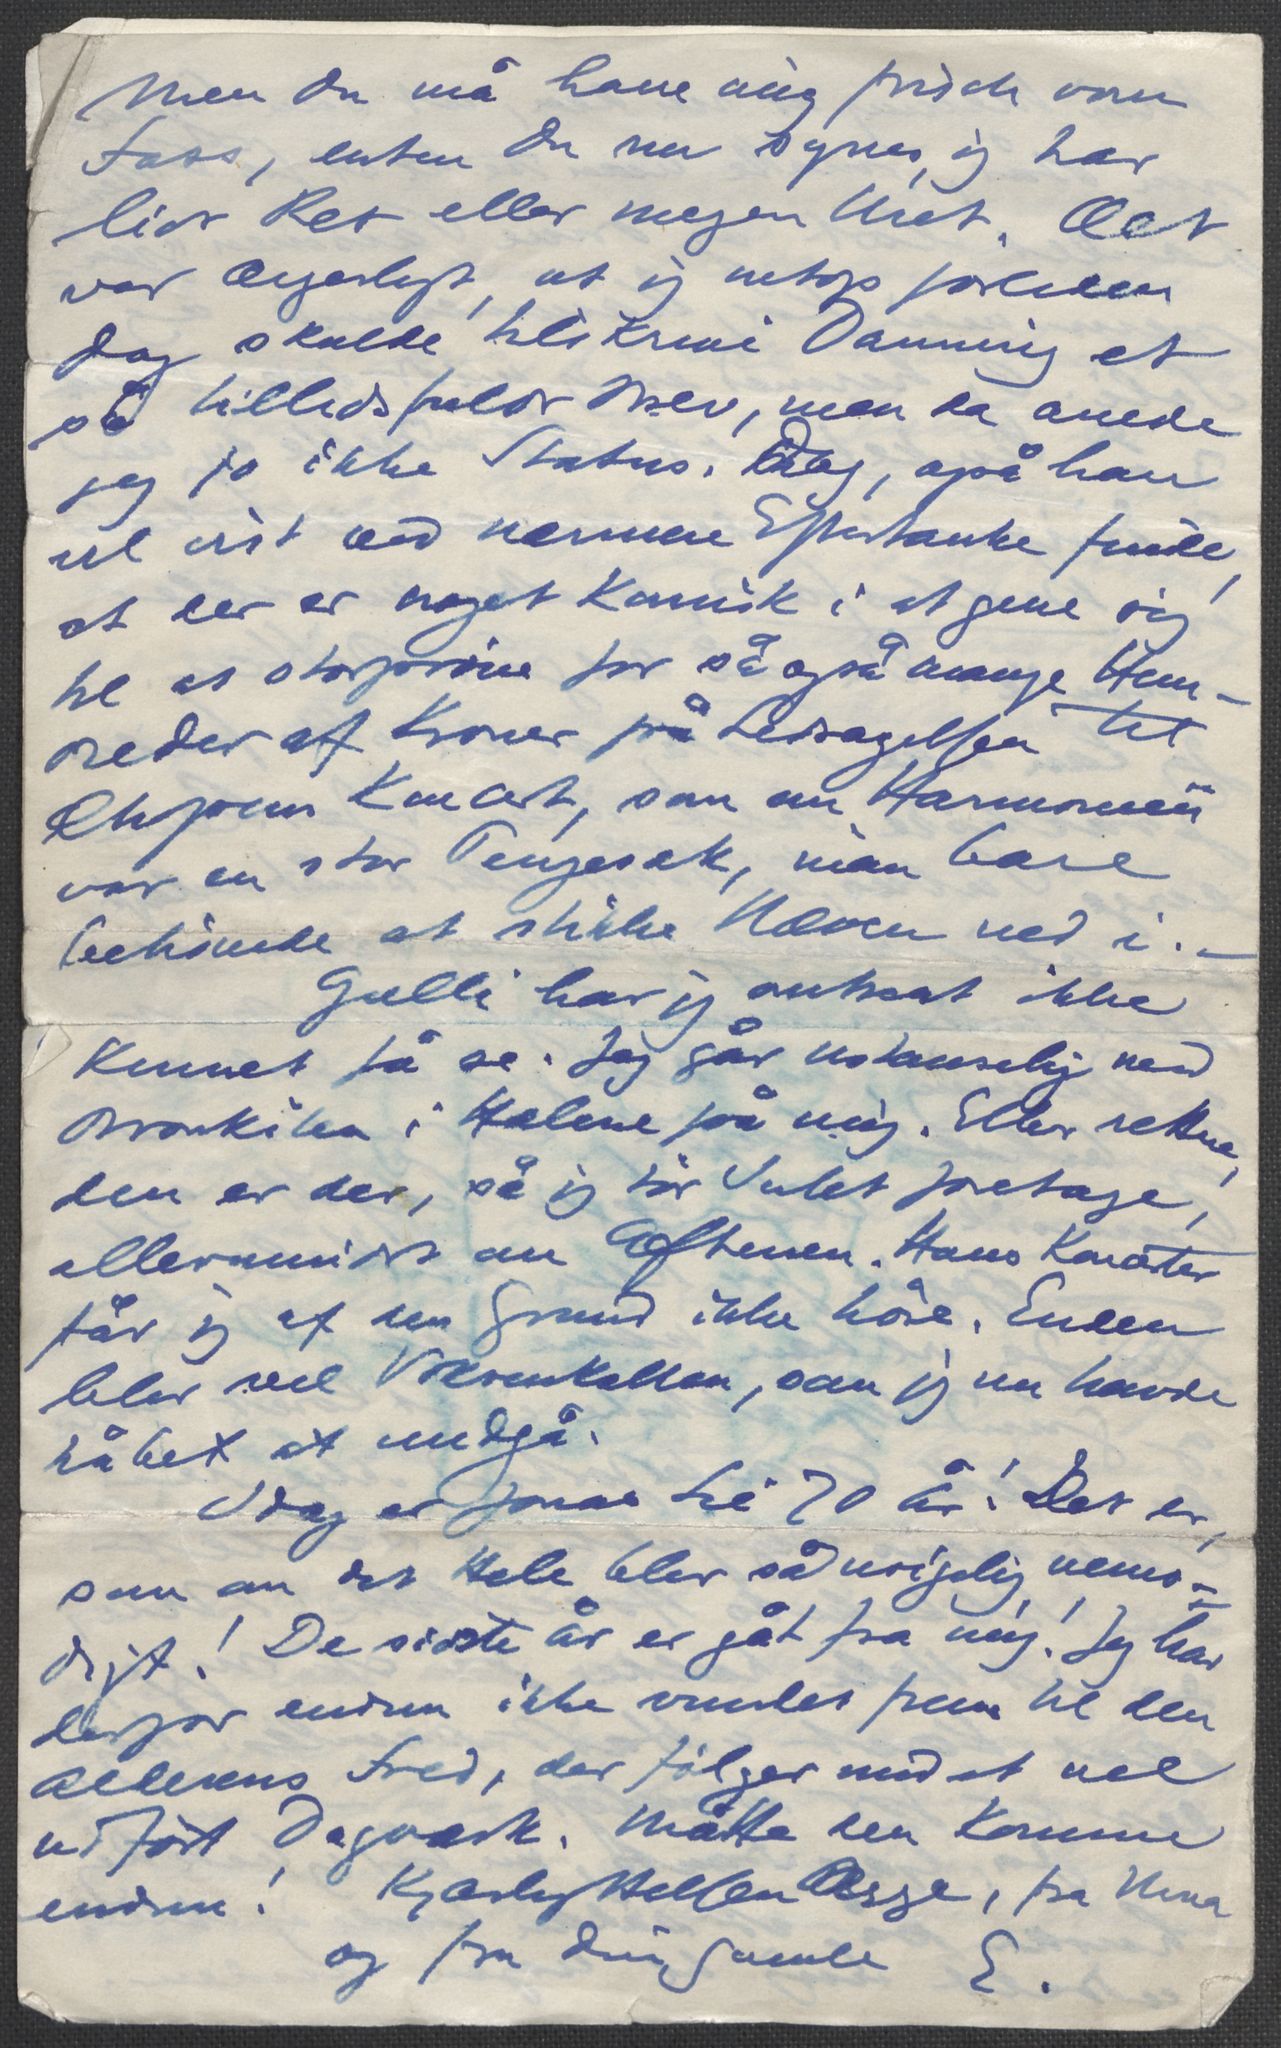 Men Du må have mig frisch vom
Fass, enten Du nu synes, jeg har
lidt Ret eller megen Uret. Det
var ærgerligt, at jeg netop forleden
Dag skulde tilskrive Danning et
så tillidsfuldt Brev, men da anede
jeg jo ikke Status. Idag, også han
vil vist ved nærmere Eftertanke finde,
at der er noget Komisk i at give sig
til at storprøve for så også mange Hun-
dreder af Kroner på Ledsagelsen til
Chopins Koncert, som om Harmonien
var en stor Pengesæk, man bare
behøvede at stikke Næven ned i. –
Gulli har jeg ikke
kunnet få se. Jeg går ustanselig med
Bronkiten i Hælene på mig. Eller rettere,
den er der, så jeg tør Intet foretage,
allermindst om Aftenen. Hans Koncerter
får jeg af den Grund ikke høre. Enden
blir vel Voksenkollen, som jeg nu havde
håbet at undgå.
Idag er Jonas Lie 70 år! Det er,
som om det Hele blir så urigelig vemo-
digt! De sidste år er gåt fra mig! Jeg har
derfor endnu ikke vundet frem til den
Alderens Fred, der følger med et vel
udført Dagværk. Måtte den komme
endnu! Kjærlig Hilsen Begge, fra Nina
og fra din gamle E.